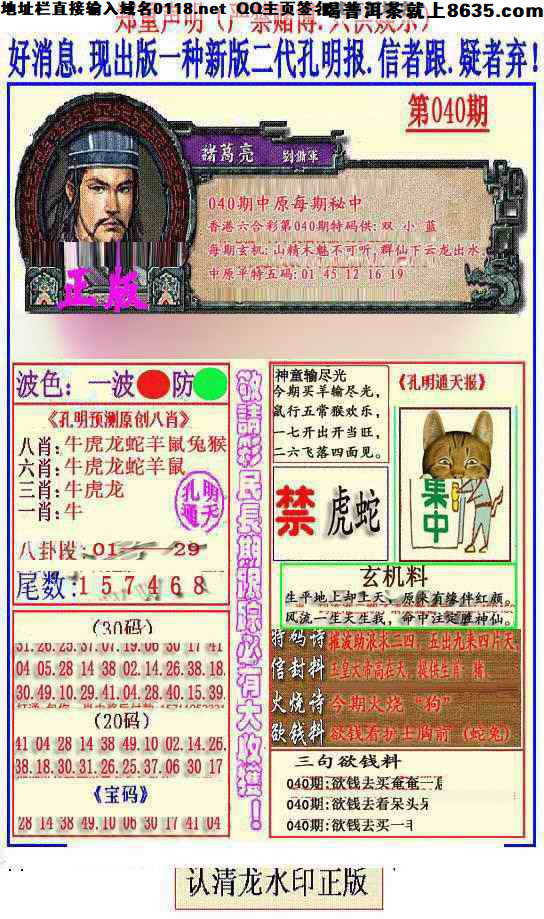 地址栏直接输入域名0118.net QQ主页签名 喝普洱茶就上8635.com
郑重声明(严禁赌博.只供娱乐)
好消息.现出版一种新版二代孔明报.信者跟.疑者弃!
第040期
諸葛亮 劉備軍
040期中原每期秘中
香港六合彩第040期特码供:双 小 蓝
每期玄机:山精木魅不可听,群仙下云龙出水
中原平特五码:01 45 12 16 19
正版
波色:一波 防
《孔明预测原创八肖》
八肖:牛虎龙蛇羊鼠兔猴
六肖:牛虎龙蛇羊鼠
三肖:牛虎龙
一肖:牛
孔明通天
八卦段:01 29
尾数:1 5 7 4 6 8
(30码)
31.26.25.37.07.19.06 30 17 41
04 05.28 14 38 02.14.26.38.18.
30.49.10 29.41.04.28.40.15.39.
(20码)
41 04 28 14 38 49.10 02.14.26.
38.18.30.31.26.25.37.06 30 17
《宝码》
28 14 38 49.10 06 30 17 41 04
敬請彩民長期跟踪必有大收獲!
神童输尽光
今期买羊输尽光,
鼠行五常猴欢乐,
一七开出开当旺,
二六飞落四面见。
《孔明通天报》
禁 虎蛇
集中
玄机料
生平地上却上天,原来有缘伴红颜。
风流一生天生我,命中注定胜神仙。
特码诗 摧波助浪水二四,五出九来四片天
信封料 玉皇大帝高在天,提供生肖:猪、
火烧诗 今期火烧“狗”
欲钱料 欲钱看护士胸前(蛇兔)
三句欲钱料
040期:欲钱去买奄奄一
040期:欲钱去看呆头
040期:欲钱去买一
认清龙水印正版